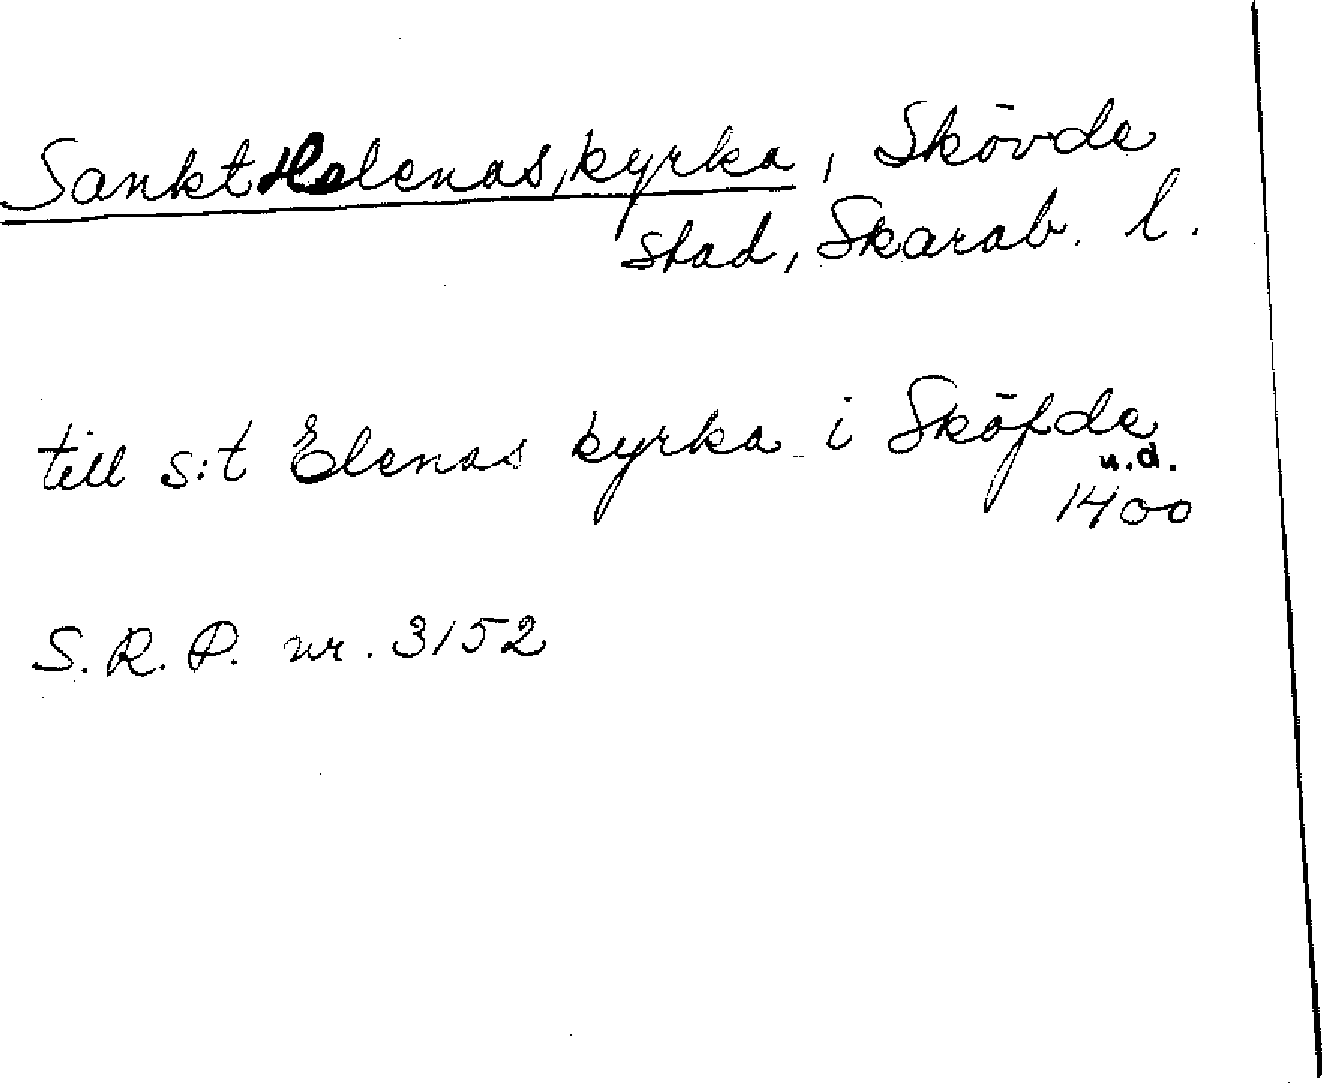 Sankt Helenas kyrka, Skövde
stad, Skarab. l.
till s:t Elenas kyrka i Sköfde
u.d.
1400
S.R.P. nr. 3152